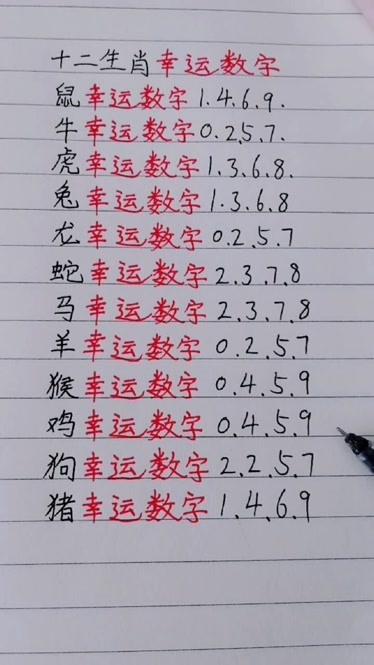 十二生肖幸运数字
鼠幸运数字1.4.6.9.
牛幸运数字0.2.5.7.
虎幸运数字1.3.6.8.
兔幸运数字1.3.6.8
龙幸运数字0.2.5.7
蛇幸运数字2.3.7.8
马幸运数字2.3.7.8
羊幸运数字0.2.5.7
猴幸运数字0.4.5.9
鸡幸运数字0.4.5.9
狗幸运数字2.2.5.7
猪幸运数字1.4.6.9